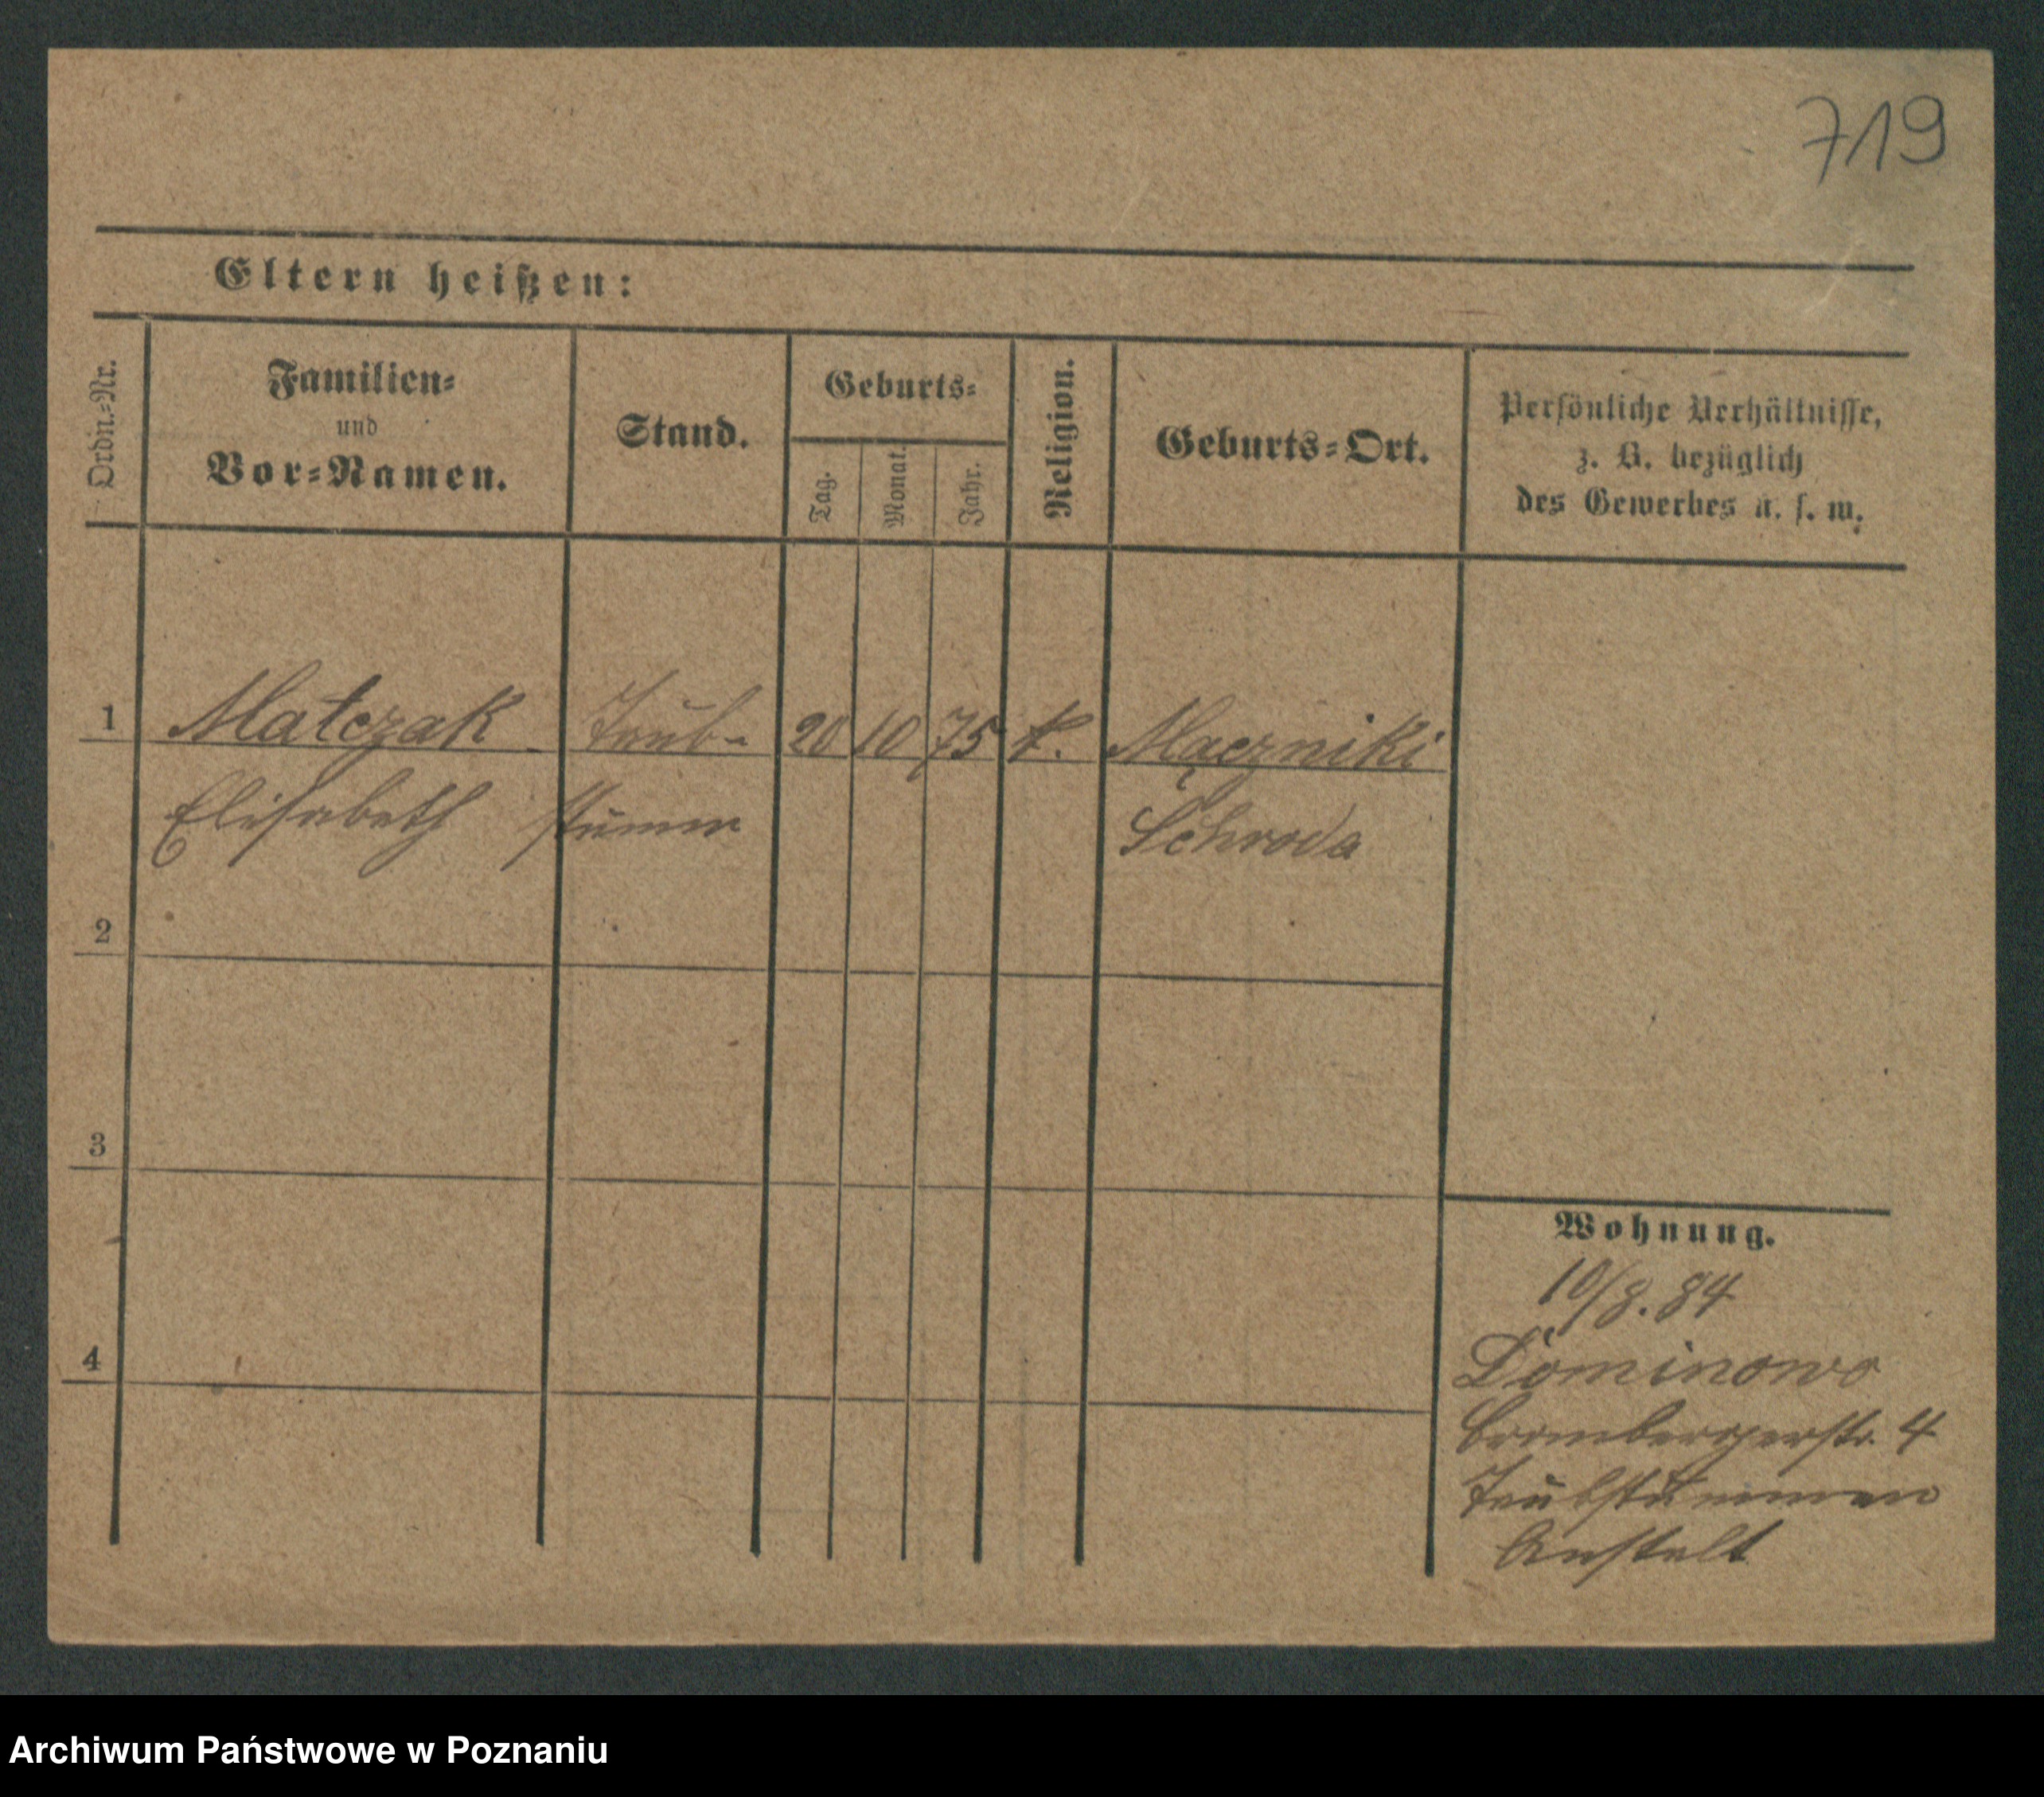 719
Eltern heißen:
Ordn.-Nr.
Familien-
und
Vor-Namen.
Stand.
Geburts-
Tag.
Monat.
Jahr.
Religion.
Geburts-Ort.
Persönliche Verhältnisse,
z. B. bezüglich
des Gewerbes u. s. w.
1 Matczak Taub- 20 10 75 k. Mączniki
Elisabeth stumm Schroda
2
3
4
Wohnung.
10/8. 84
Dominowo
Brombergerstr. 4
Taubstummen
Anstalt
Archiwum Państwowe w Poznaniu